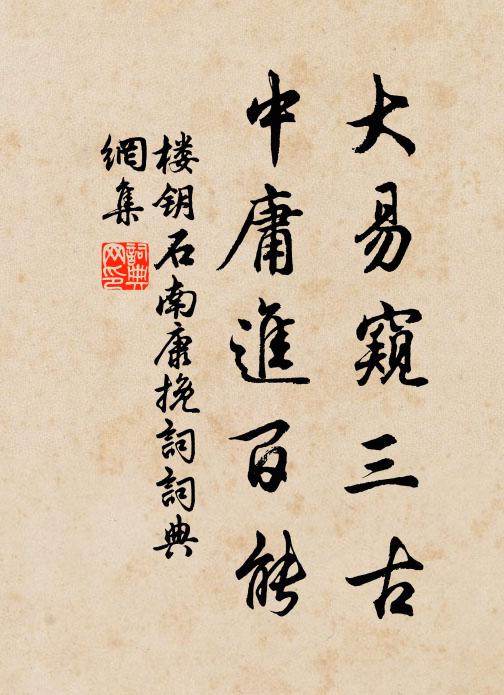 大易窺三古
中庸進百能
楼钥石南康挽詞詞典
網集
詞典
网印